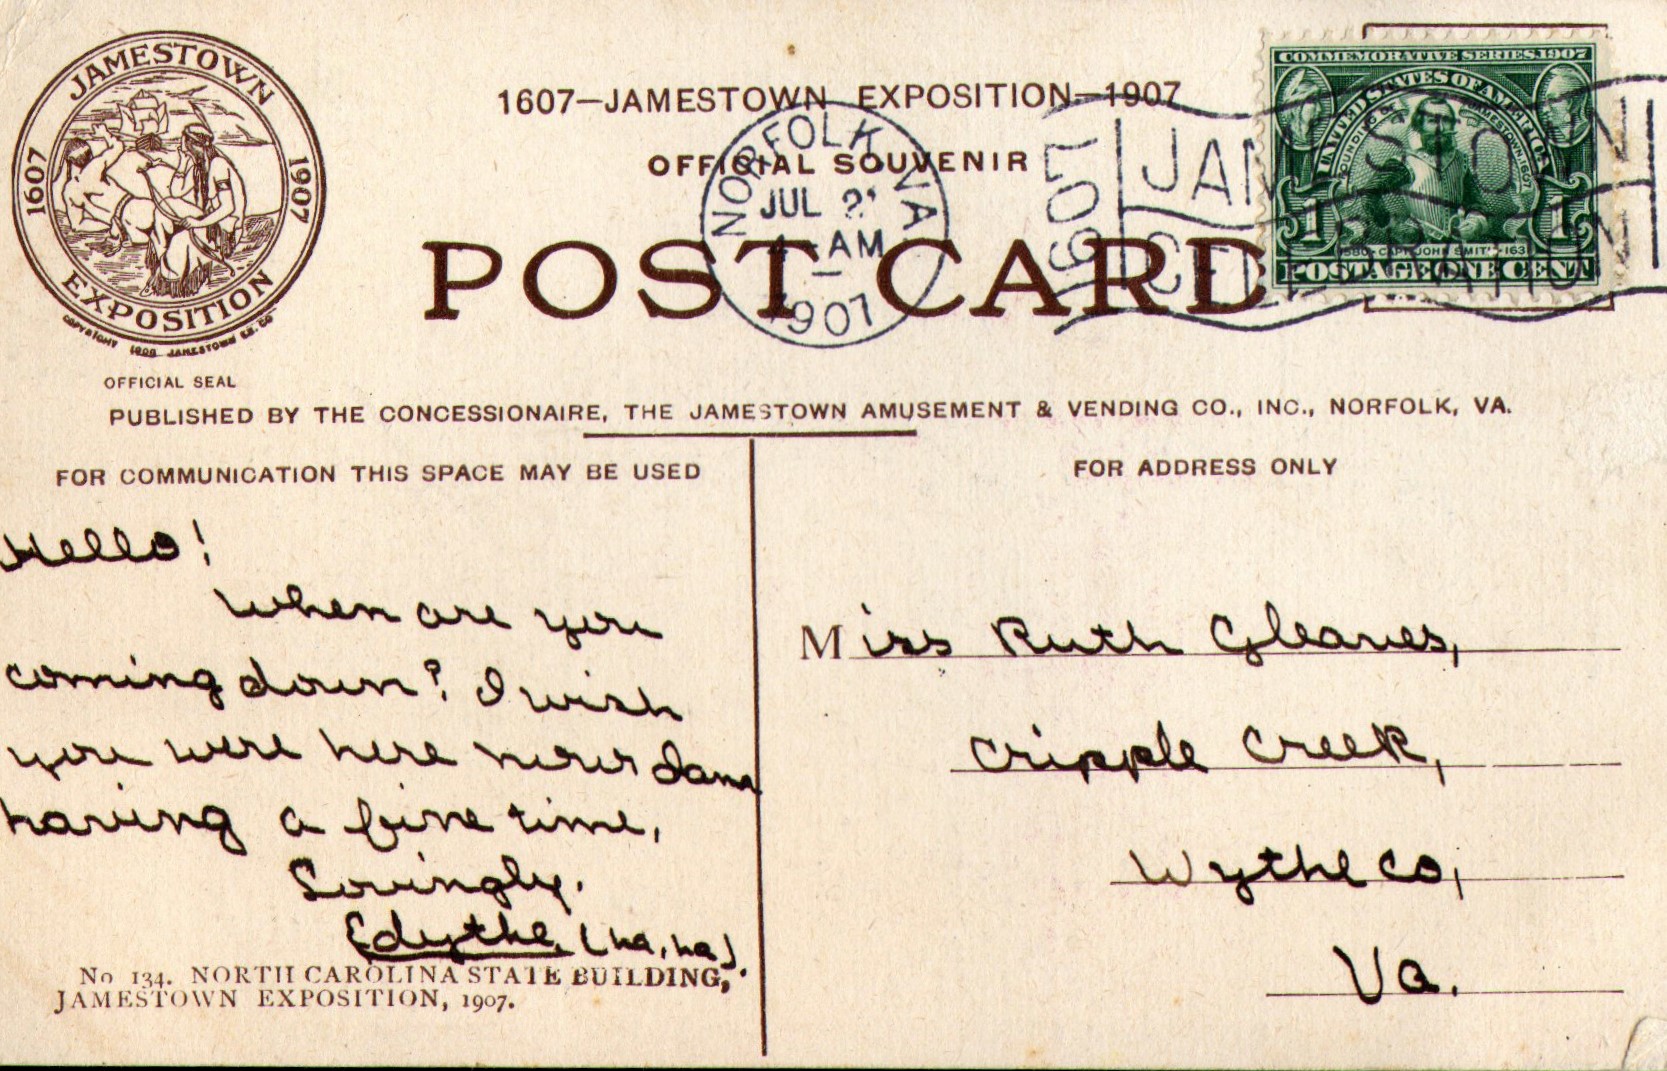 JAMESTOWN
1607 1907
EXPOSITION
COPYRIGHT 1906 JAMESTOWN EX. CO
OFFICIAL SEAL
1607—JAMESTOWN EXPOSITION—1907
OFFICIAL SOUVENIR
POST CARD
NORFOLK VA
JUL
AM
1907
1607
JAMESTOWN
1907
COMMEMORATIVE SERIES 1907
UNITED STATES OF AMERICA
FOUNDING OF JAMESTOWN 1607
1580 CAPT. JOHN SMITH 1631
1 1
POSTAGE ONE CENT
PUBLISHED BY THE CONCESSIONAIRE, THE JAMESTOWN AMUSEMENT & VENDING CO., INC., NORFOLK, VA.
FOR COMMUNICATION THIS SPACE MAY BE USED
Hello!
When are you
coming down? I wish
you were here now I am
having a fine time,
Lovingly.
Edythe. (ha, ha).
No 134. NORTH CAROLINA STATE BUILDING,
JAMESTOWN EXPOSITION, 1907.
FOR ADDRESS ONLY
Miss Ruth Gleaves,
Cripple Creek,
Wythe Co,
Va.